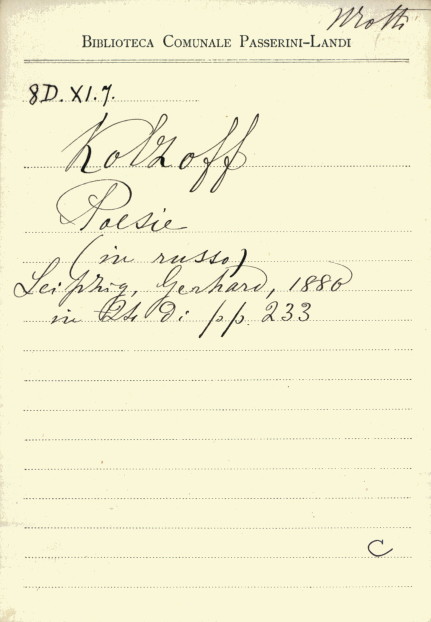 BIBLIOTECA COMUNALE PASSERINI-LANDI
8D. XI. 7.
Kolzoff
Poesie
(in russo)
Leipzig, Gerhard, 1880
in di pp. 233
C